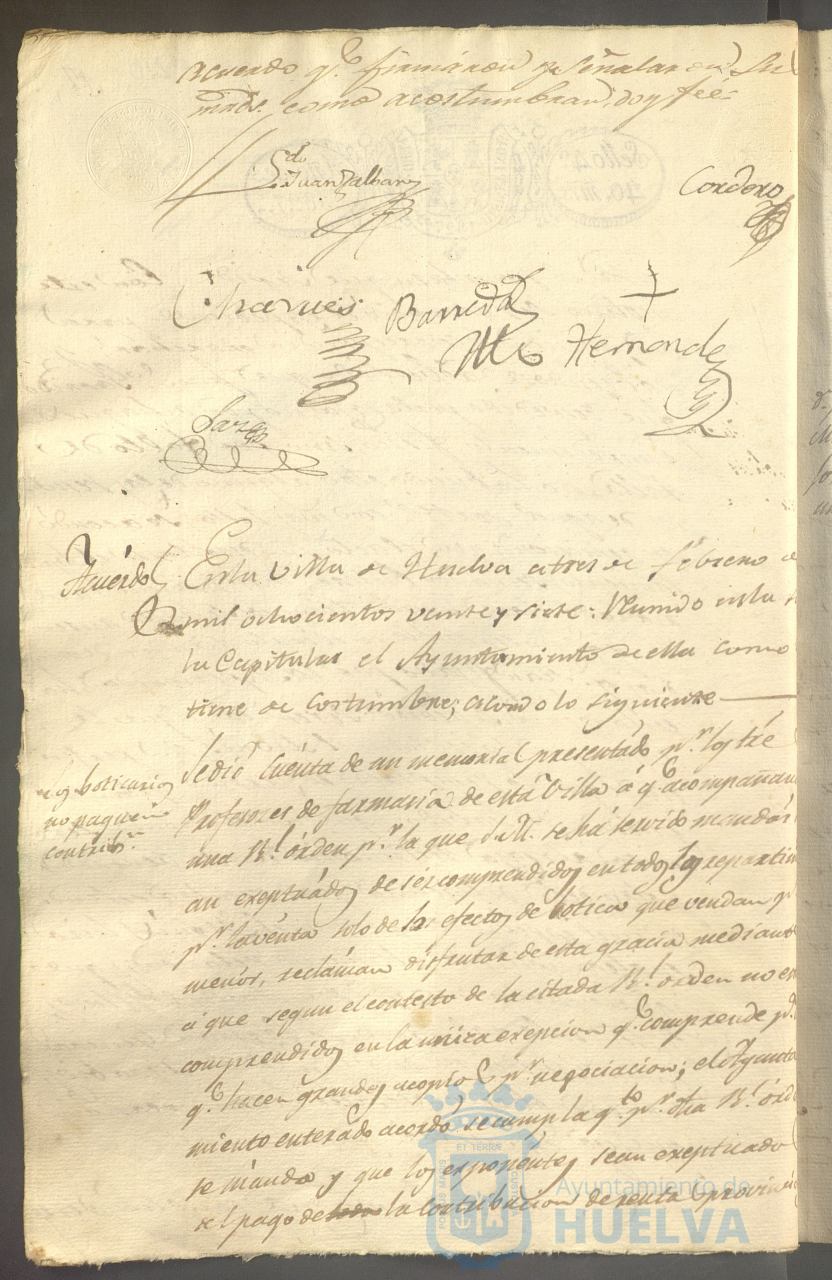 acuerdo q.e firmáron y señalaron Su
mrds. como acostumbran, doy fee
L.do Juan Zalbar
Cordero
Charnes
Barreda
Hernande
Acuérdo
En la Villa de Huelva a tres de febrero de
mil ochocientos veinte y siete: Reunido en la
la Capitular el Ayuntamiento de ella como
tiene de costumbre; acordo lo siguiente
los boticarios
no paguen
contrib.n
Se dió cuénta de un memorial presentádo p.r los tré
Profesores de farmacia de está Villa á q.e acompañan
una R.l órden p.r la que S.M. se há servido mandár
an exeptuádos de sér comprendidos en todos los repartim
p.r la venta solo de los efectos de botica que vendan p.r
menór, reclaman disfrutar de esta gracia mediante
á que segun el contesto de la citada R.l orden no es
comprendidos en la unica exepcion q.e comprende p.a
q.e hacen grandes acopios p.r negociacion; el Ayunta
miento enterádo acordó se cumpla q.to p.r dha R.l órd
se mánda y que los exponentes sean exeptuado
del pago de la Contribucion de renta Provinci
SELLO 4.º
40 M.
Ayuntamiento de
HUELVA